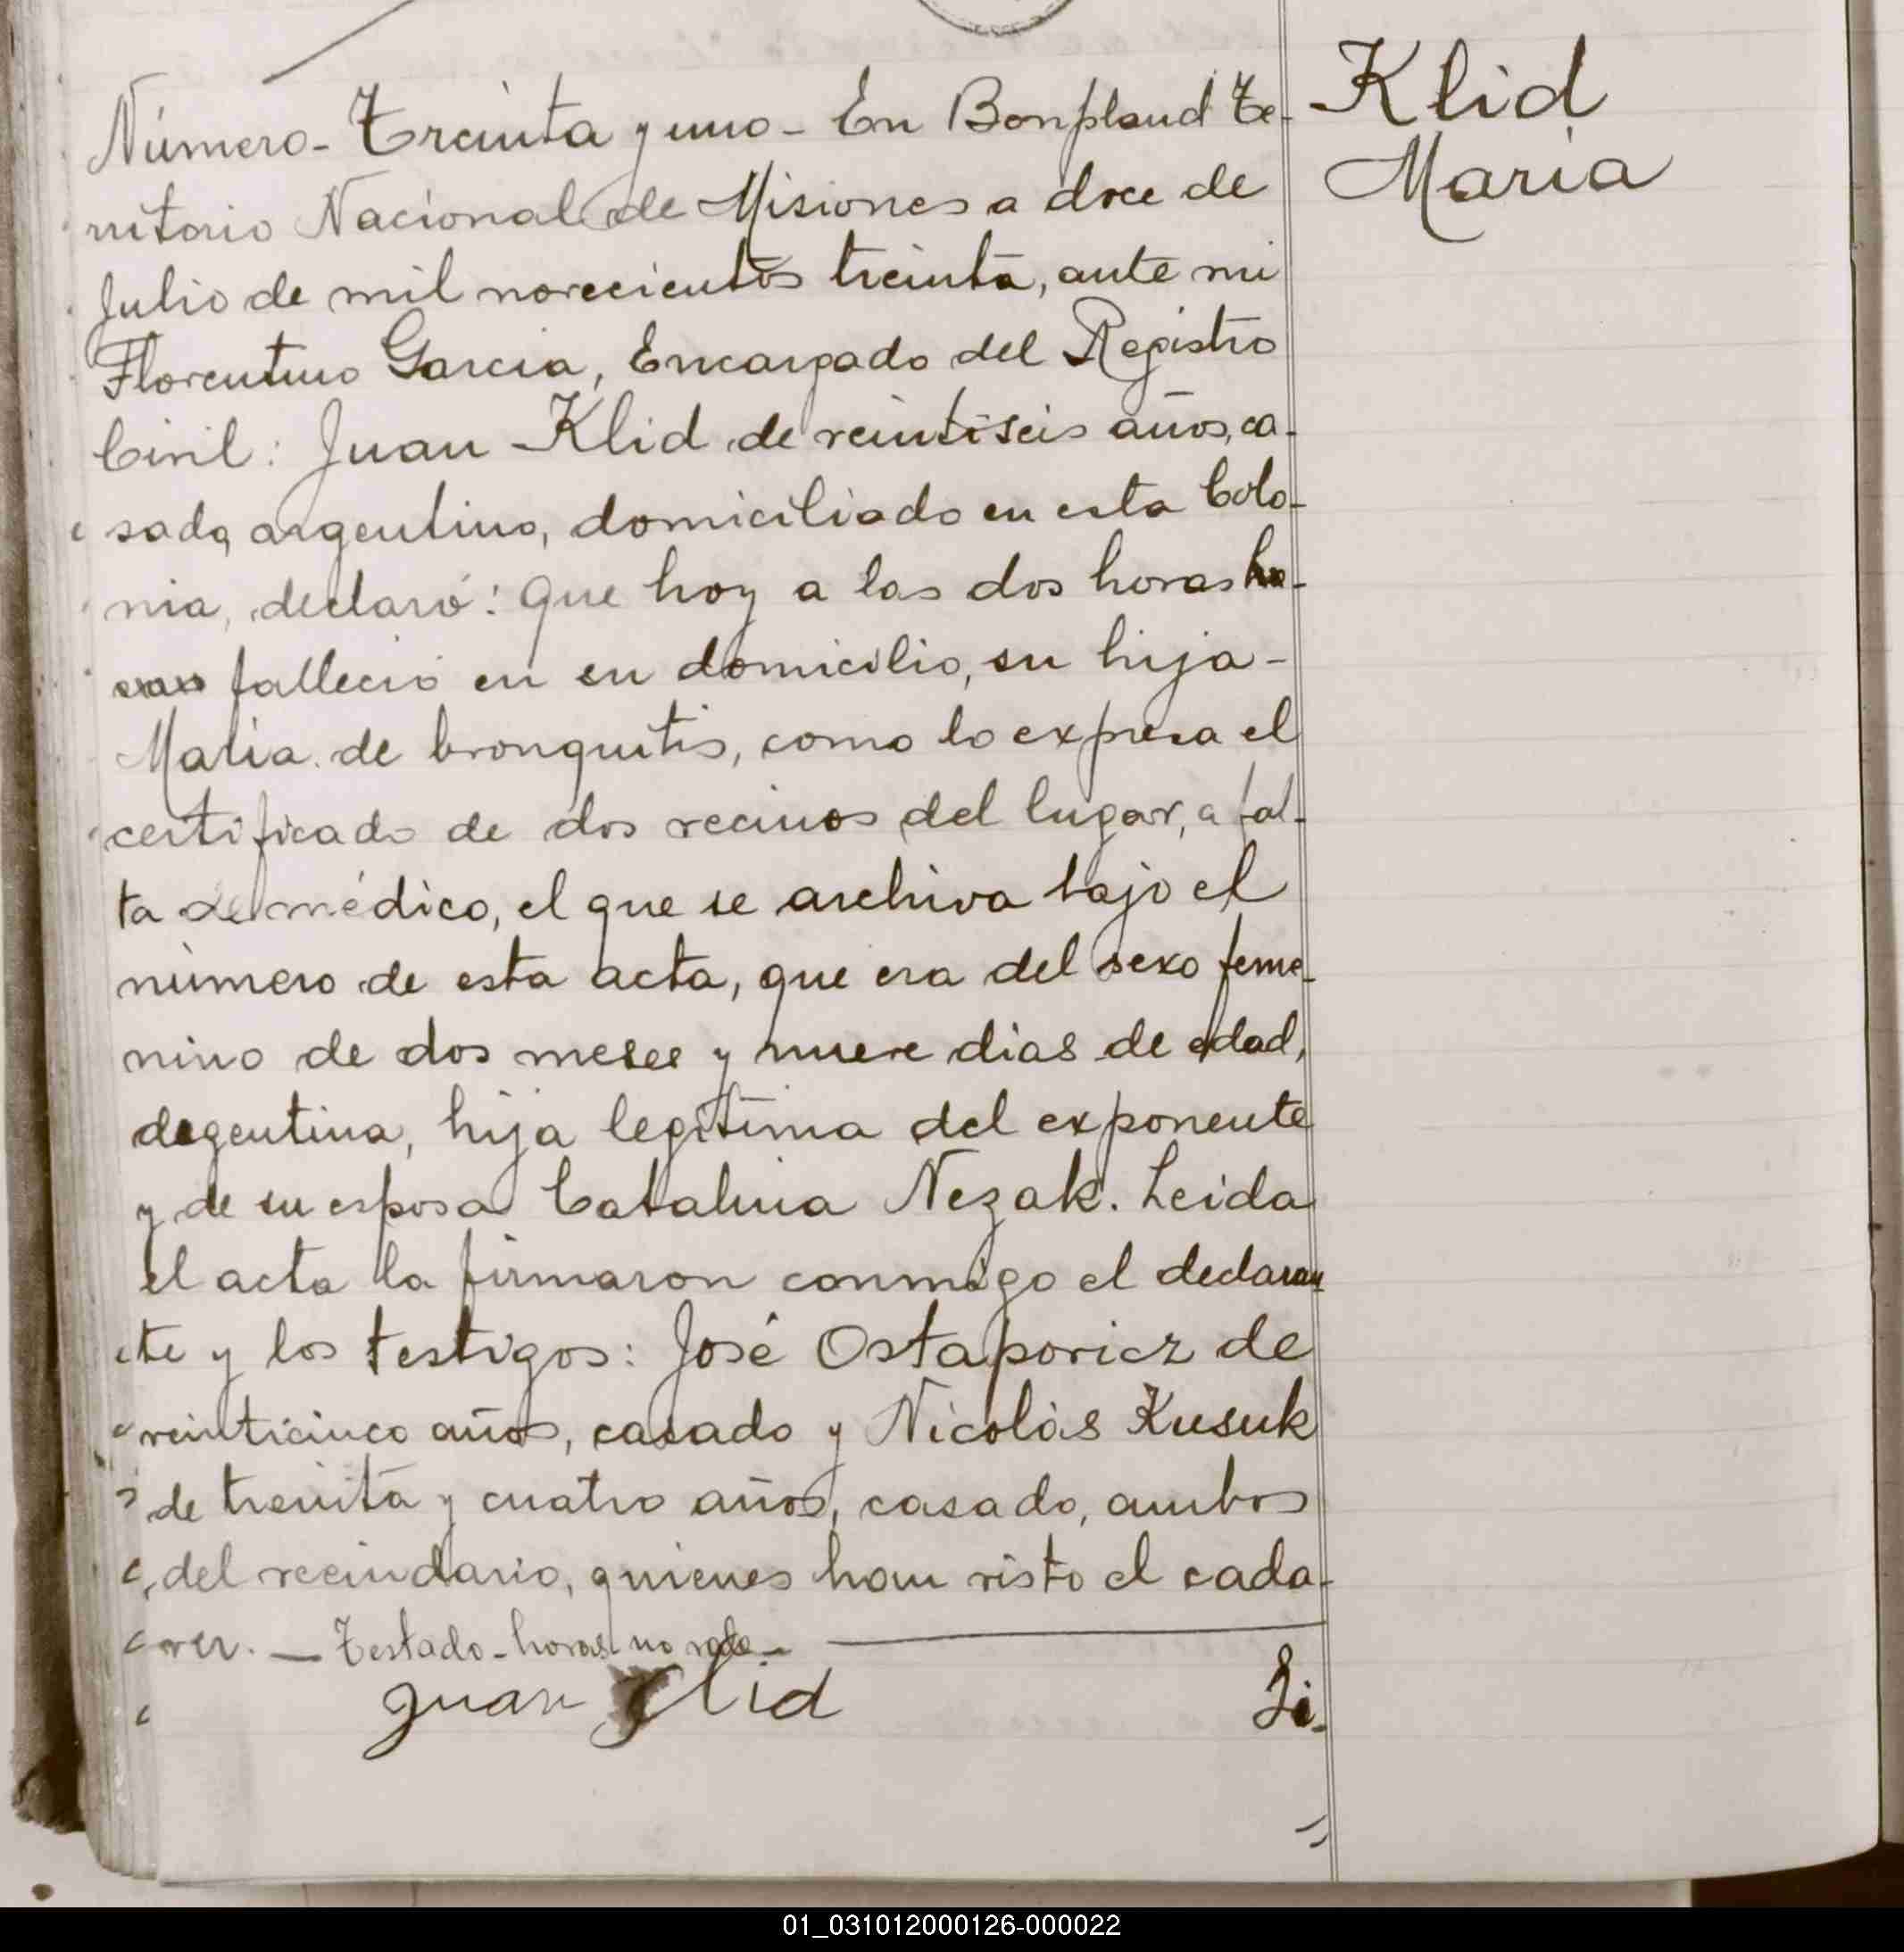 Klid
Maria
Número - Treinta y uno - En Bonpland Te-
rritorio Nacional de Misiones a doce de
Julio de mil novecientos treinta, ante mi
Florentino Garcia, Encargado del Registro
Civil: Juan Klid de veintiseis años, ca-
sado, argentino, domiciliado en esta Colo-
nia, declaró: Que hoy a las dos horas ho-
ras falleció en su domicilio, su hija -
Maria de bronquitis, como lo expresa el
certificado de dos vecinos del lugar, a fal-
ta de médico, el que se archiva bajo el
número de esta acta, que era del sexo feme-
nino de dos meses y nueve dias de edad,
argentina, hija legítima del exponente
y de su esposa Catalina Nezak. Leida
el acta la firmaron conmigo el declaran-
te y los testigos: José Ostapovicz de
veinticinco años, casado y Nicolás Kusuk
de treinta y cuatro años, casado, ambos
del vecindario, quienes han visto el cada-
ver. — Testado - horas no vale -
Juan Klid
01_031012000126-000022